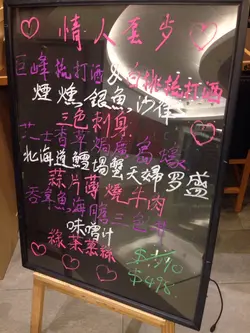 情人套步
巨峰梳打酒 or 白桃梳打酒
煙燻銀魚沙律
三色刺身
芝士香草焗廣島蠔
北海道鱈場蟹天婦罗盛
蒜片薄燒牛肉
吞拿魚海膽三色丼
味噌汁
綠茶慕絲
$498